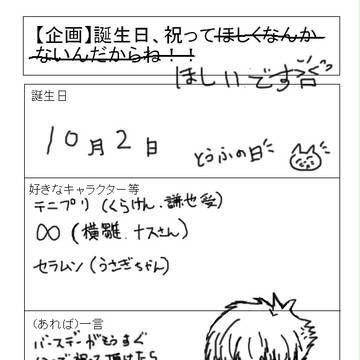 【企画】誕生日、祝ってほしくなんか
ないんだからね！！
ほしいです
誕生日
10月2日
とうふの日
好きなキャラクター等
テニプリ (くらけん、謙也受)
∞ (横雛、ナスさん)
セラムン (うさぎちゃん)
(あれば)一言
バースデーがもうすぐ
祝って頂けたら